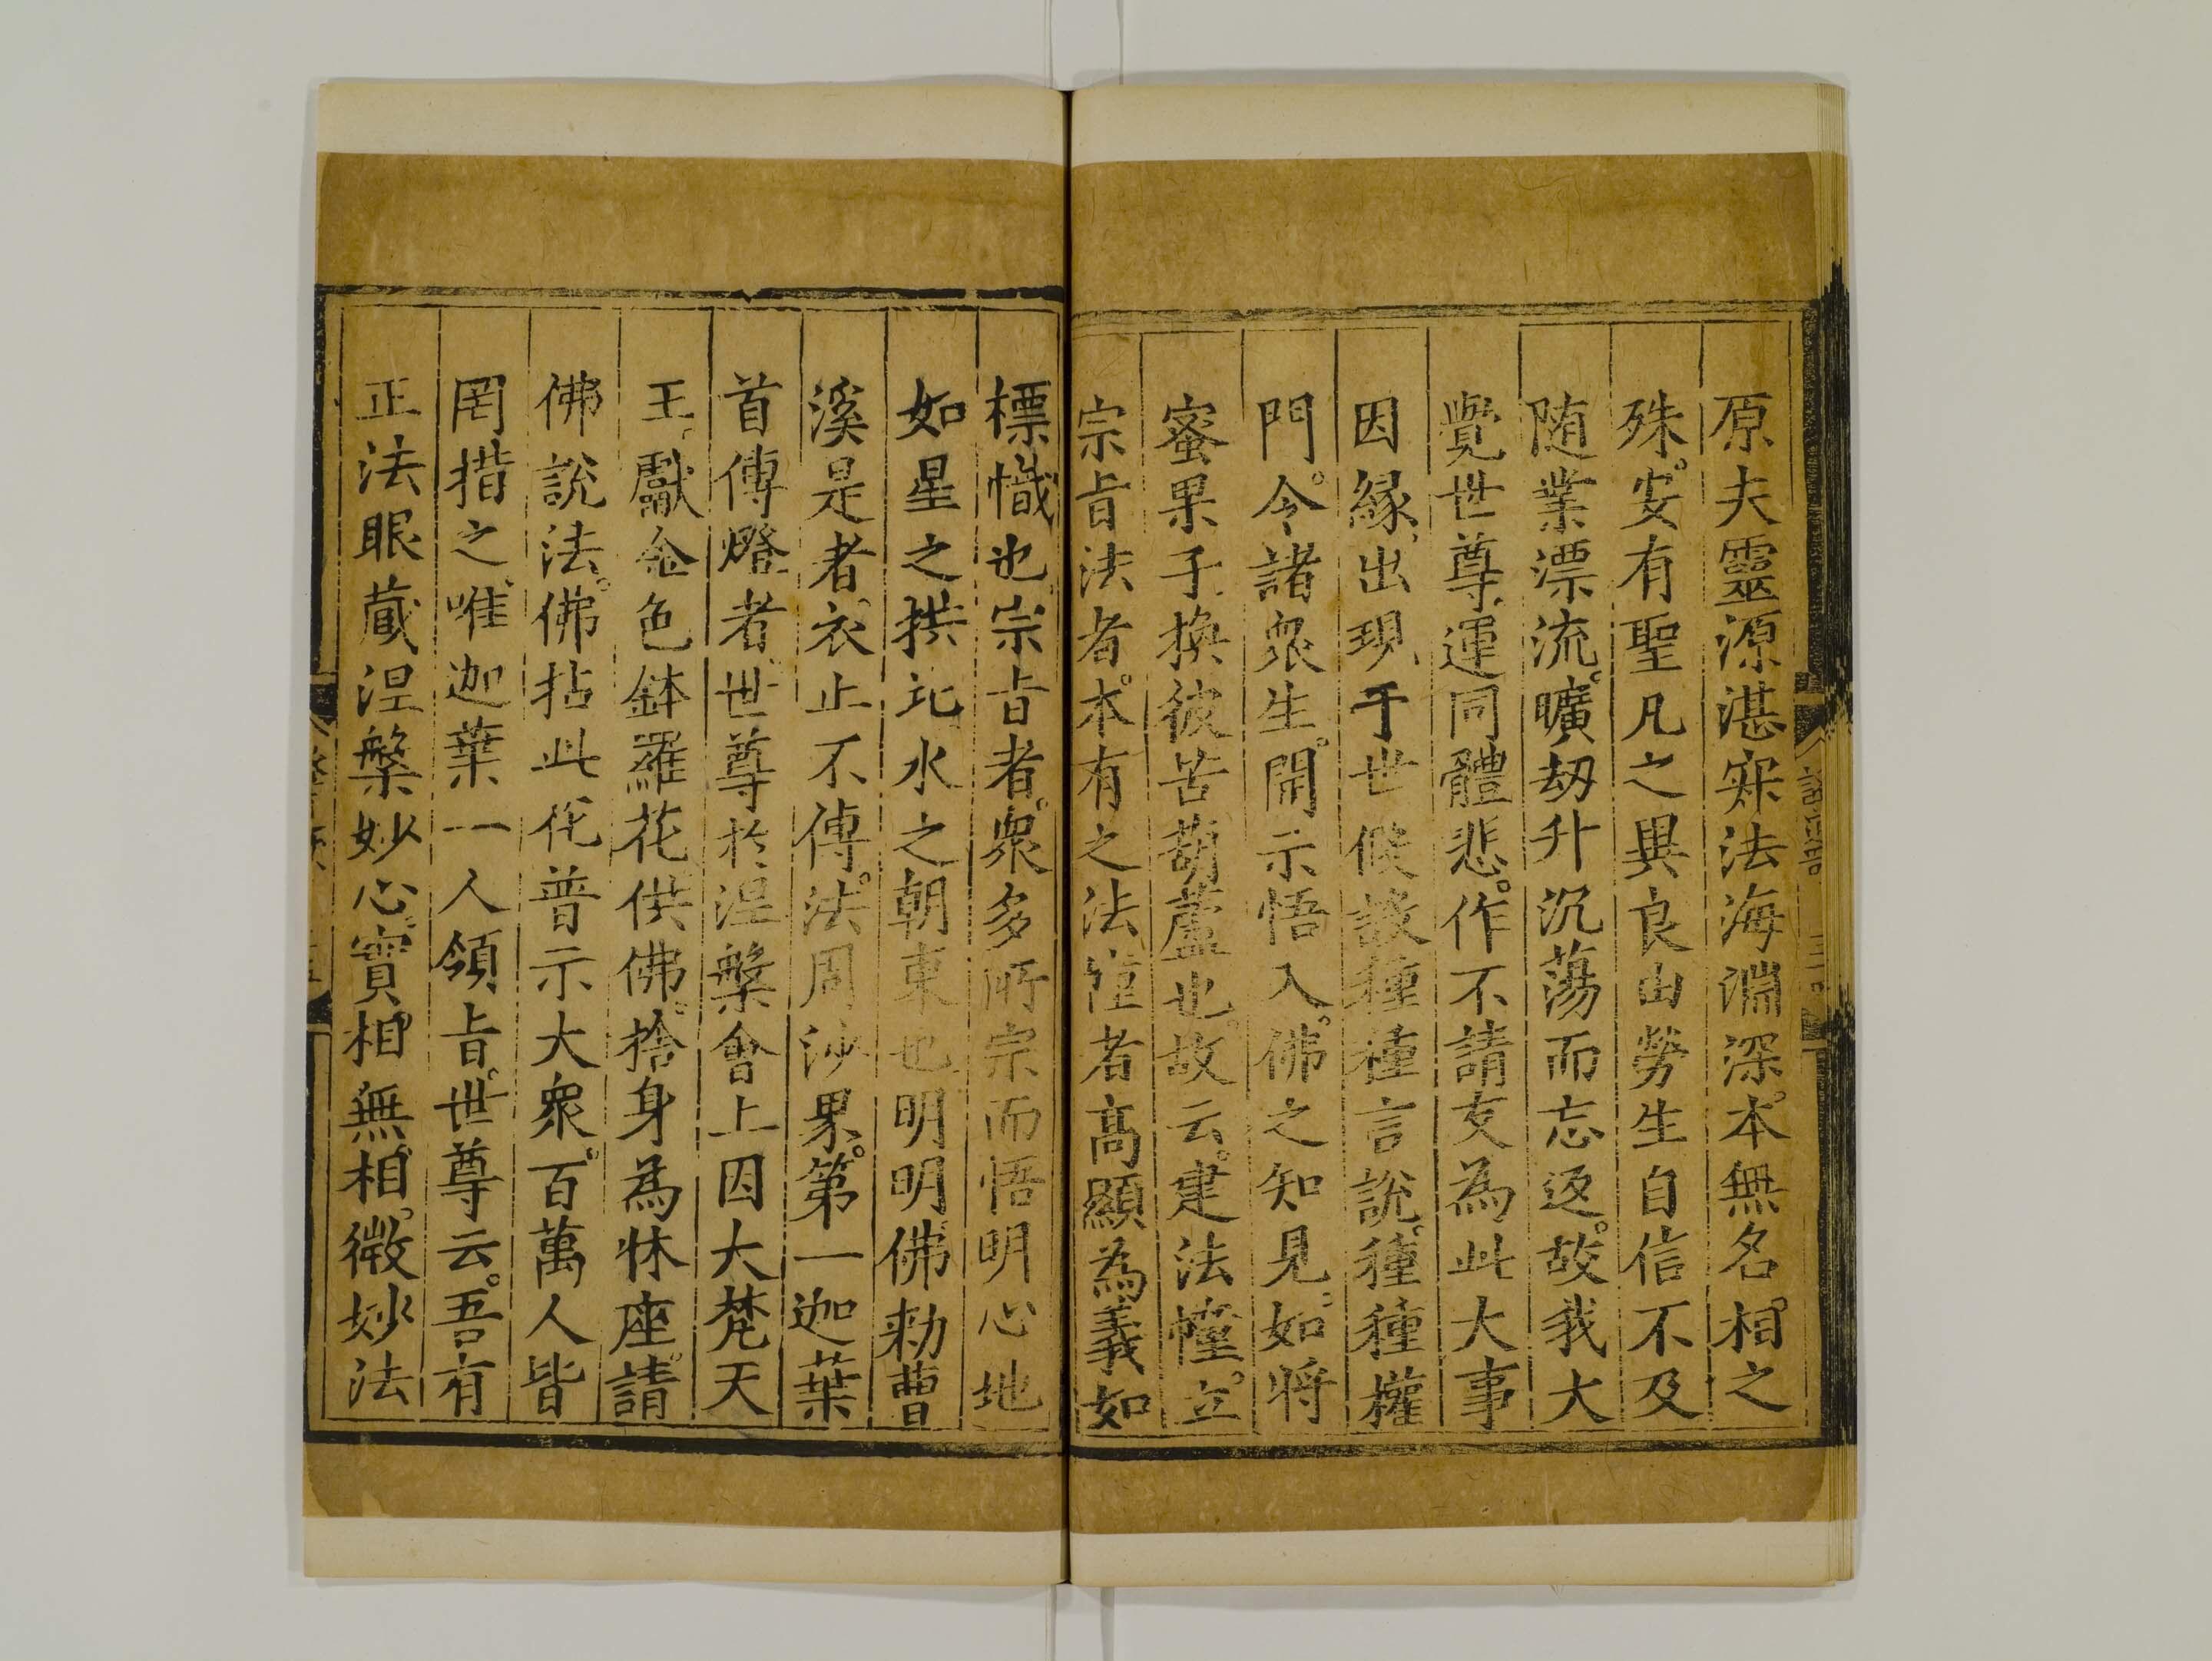 原夫靈源湛寂法海淵深。本無名。相之
殊。安有聖凡之異良由勞生自信不及
随業漂流。曠劫升沉蕩而忘返。故我大
覺世尊運同體悲。作不請友為此大事
因緣出現于世假設種種言說。種種權
門。令諸衆生。開示悟入。佛之知見。如將
蜜果子換彼苦葫蘆也。故云。建法幢。立
宗旨法者。本有之法幢者高顯為義如
標幟也宗旨者。衆多所宗而悟明心地
如星之拱北水之朝東也明明佛勅曹
溪是者。衣止不傳。法周沙界。第一迦葉
首傳燈者世尊於涅槃會上因大梵天
王獻金色鉢羅花供佛。捨身為牀座。請
佛說法。佛拈此花普示大衆。百萬人皆
罔措之唯迦葉一人領旨。世尊云。吾有
正法眼藏涅槃妙心。實相。無相。微妙法